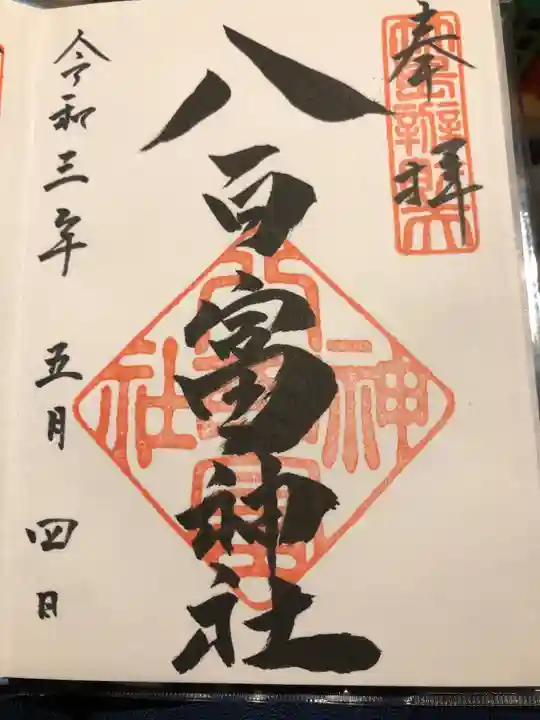 奉拝
八百富神社
令和三年 五月 四日
神社